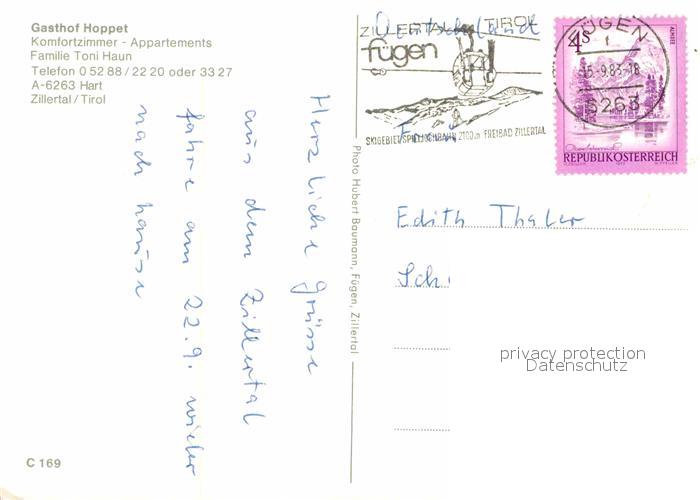 Gasthof Hoppet
Komfortzimmer - Appartements
Familie Toni Haun
Telefon 0 52 88 / 22 20 oder 33 27
A-6263 Hart
Zillertal / Tirol
Herzliche Grüsse
aus dem Zillertal
fahre am 22.9. wieder
nach hause
C 169
Photo Hubert Baumann, Fügen, Zillertal
Deutschland
ZILLERTAL TIROL
fügen
SKIGEBIET SPIELJOCHBAHN 2100m FREIBAD ZILLERTAL
FÜGEN
1
15.-9.83-18
6263
4S
ALMSEE
Oberösterreich
REPUBLIK ÖSTERREICH
Edith Thaler
Sch
privacy protection
Datenschutz